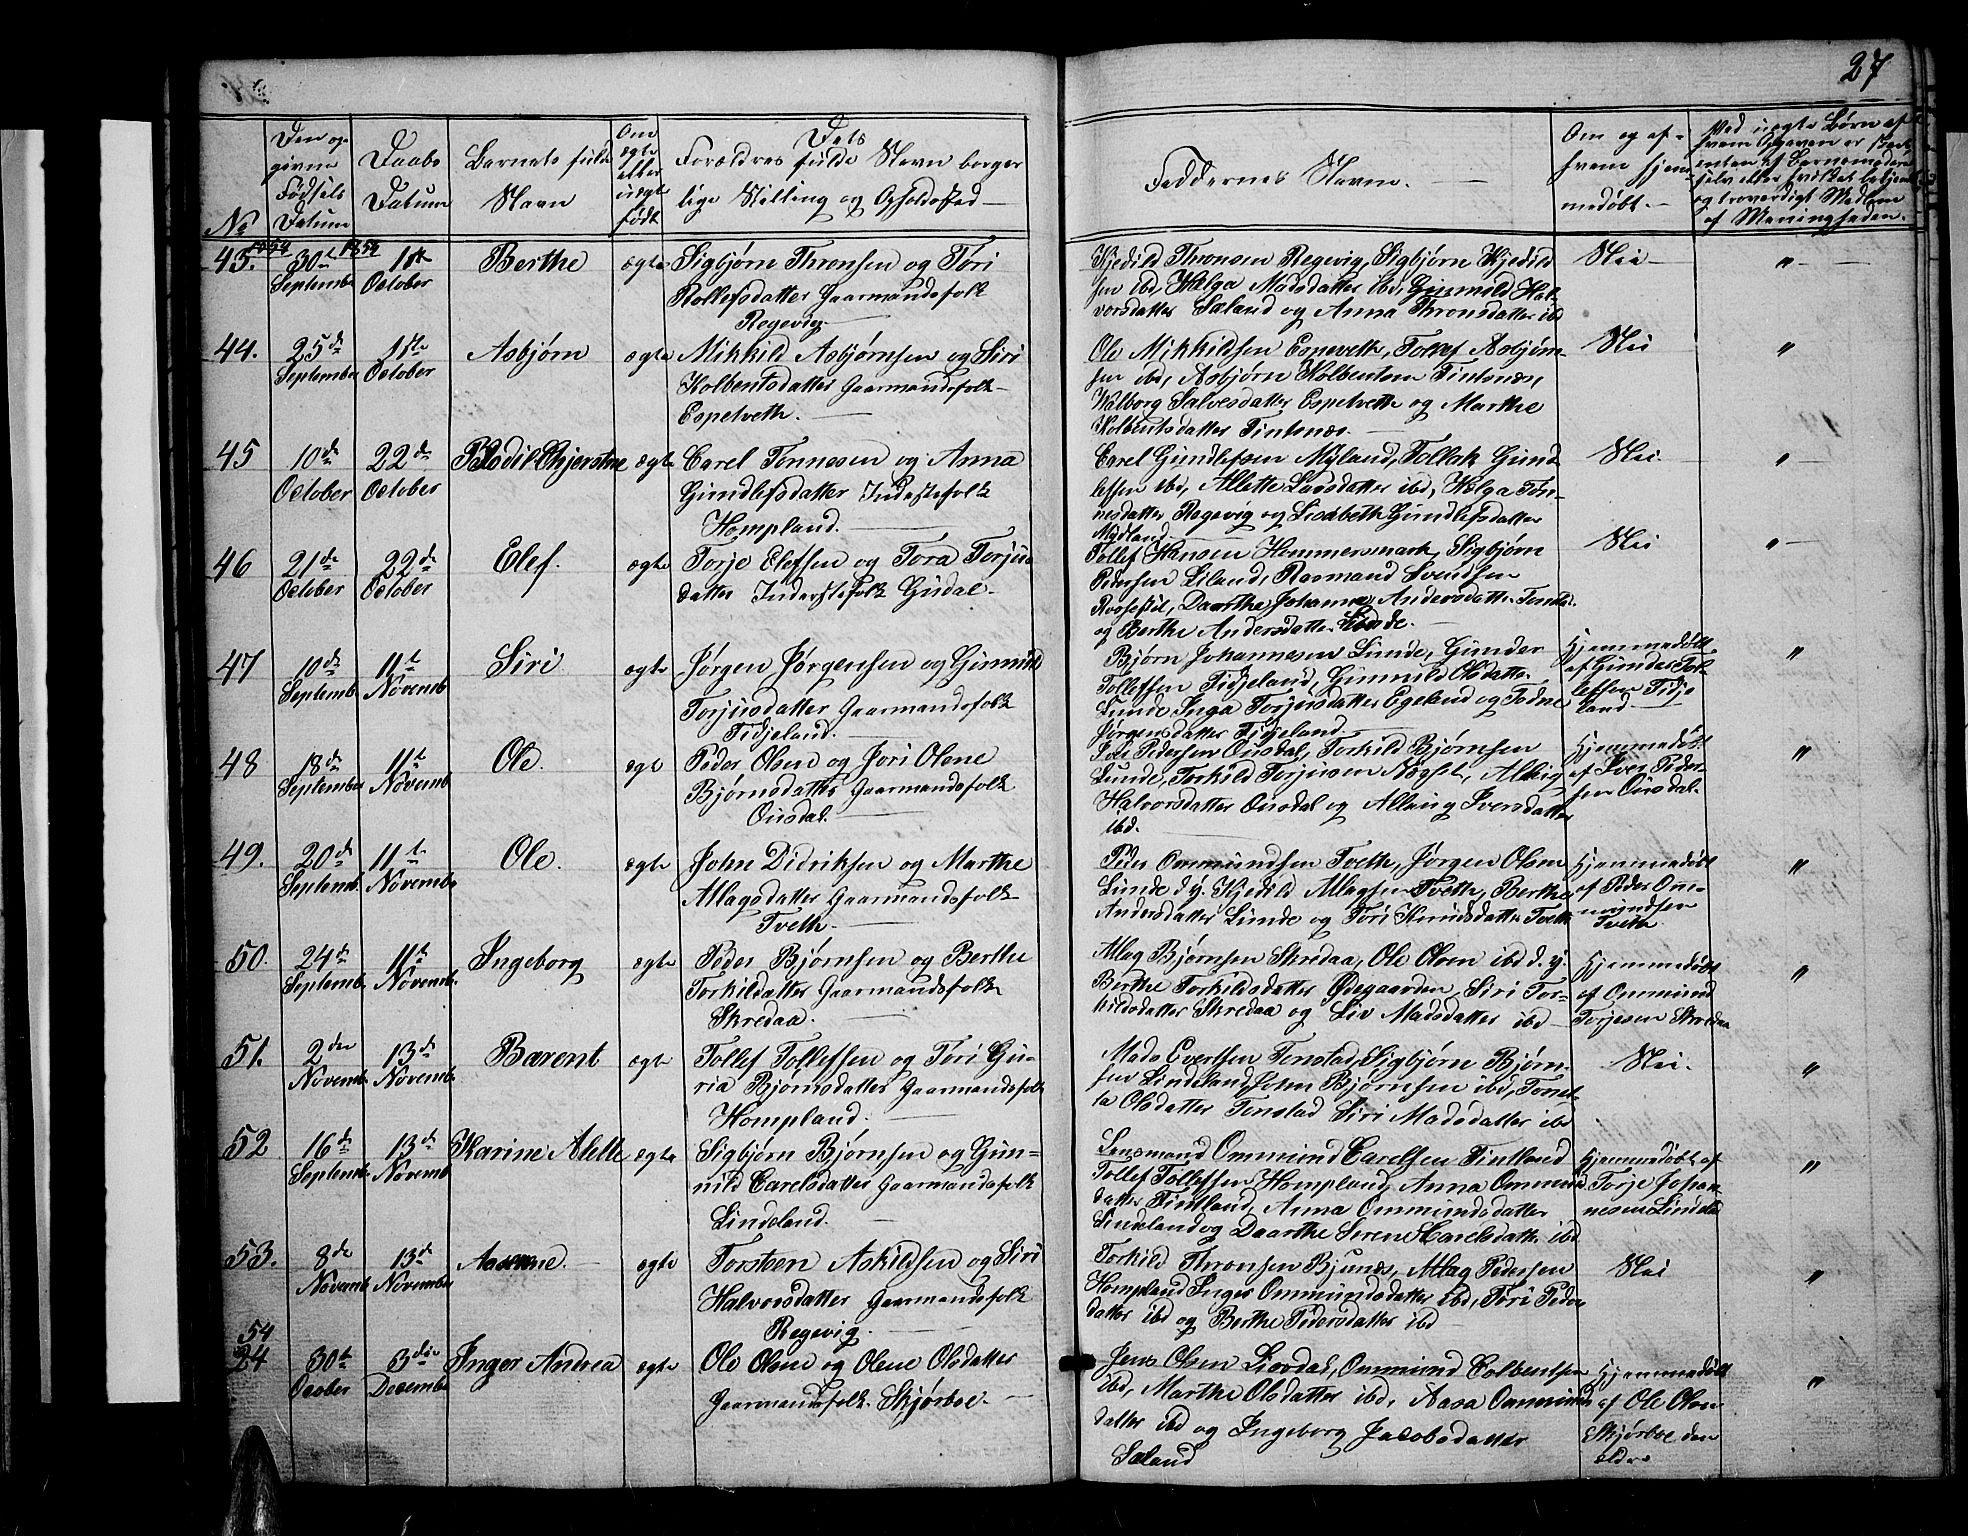 27
No
Den op-
givne
Fødsels
Datum
Daabs
Datum
Barnets fulde
Navn
Om
ægte
eller
uægte
født
Dets
Forældres fulde Navn borger
lige Stilling og Opholdssted
Faddernes Navne.
Om og af
hvem hjem
medøbt.
Ved uægte Børn af
hvem Opgaven er
selv eller
og troværdigt Medlem
af Menigheden.
43. 1854 30te September 1854 1ste October Berthe ægte
Sigbjørn Thronsen og Tori
Rollefsdatter Gaarmandsfolk
Regevig
Kjedild Thronsen Regevig, Sigbjørn Kjedild
sen ibd Helga Madsdatter ibd, Gunnild Hal-
vorsdatter Sæland og Anna Thronsdatter ibd
Nei
"
44. 25de September 1ste October Asbjørn ægte
Mikkild Asbjørnsen og Siri
Kolbentsdatter Gaarmandsfolk
Espetveth.
Ole Mikkildsen Espetveth, Tollef Asbjørn
sen ibd, Asbjørn Kolbentsen Tintsnæs,
Valborg Salvesdatter Espetveth og Marthe
Kolbentsdatter Tintsnæs.
Nei
"
45 10de October 22de October Bodil Chjerstine ægte
Carel Tønnesen og Anna
Gundlefsdatter Inderstefolk
Hompland.
Carel Gundlefsen Myland, Tollak Gund
lefsen ibd, Allette Larsdatter ibd, Helga Tøn
nesdatter Regevig og Lisabeth Gundlefsdatter
Mydland
Nei
"
46 21de October 22de October Elef. ægte
Torje Elefsen og Tora Torjus
datter Inderstefolk Gudal
Tollef Hansen Hommersmark, Sigbjørn
Pedersen Eiland, Rasmand Svendsen
Daarthe Johanne Andersdatter
og Berthe Andersdatter Lunde.
Nei
"
47 10de Septemb 11te Novemb Siri. ægte
Jørgen Jørgensen og Gunnild
Torjusdatter Gaarmandsfolk
Tidjeland.
Bjørn Johannesen Lunde, Gunder
Tollefsen Tidjeland, Gunnild Olsdatter
Lunde Inga Torjusdatter Egeland og Todne
Jørgensdatter Tidjeland
Hjemmedøbt
af Gunder Tol
lefsen Tidje
land
"
48 18de September 11te Novemb Ole. ægte
Peder Olsen og Jori Olene
Bjørnsdatter Gaarmandsfolk
Ousdal.
Iver Pedersen Ousdal, Torkild Bjørnsen
Lunde, Torkild Torjusen
Halvorsdatter Ousdal og Allaug Iversdatter
ibd.
Hjemmedøbt
af Iver Peder
sen Ousdal.
"
49. 20de Septemb. 11te Novemb Ole. ægte
John Didriksen og Marthe
Atlagsdatter Gaarmandsfolk
Tveth.
Peder Ommundsen Tveth, Jørgen Olsen
Lunde d.y. Kjedild Atlagsen Tveth, Berthe
Andersdatter Lunde og Tori Knudsdatter Tveth
Hjemmedøbt
af Peder Om
mundsen
Tveth
"
50. 24de Septemb. 11te Novemb. Ingeborg ægte
Peder Bjørnsen og Berthe
Torkildatter Gaarmandsfolk
Skredaa.
Atlag Bjørnsen Skredaa, Ole Olsen ibd d. y.
Berthe Torkildsdatter Ødegaarden, Siri Tor-
kildsdatter Skredaa og Liv Madsdatter ibd
Hjemmedøbt
af Ommund
Torjesen Skredaa
"
51. 2den Novemb. 13de Novemb. Barent ægte
Tollef Tollefsen og Tori Gu-
ria Bjørnsdatter Gaarmandsfolk
Hompland.
Mads Evertsen Tonstad, Sigbjørn Bjørn
sen Lindeland, John Bjørnsen ibd,
Olsdatter Tonstad Siri Madsdatter ibd
Nei.
"
52 16de Septemb. 13de Novemb Karine Alette ægte
Sigbjørn Bjørnsen og Gun-
nild Carelsdatter Gaarmandsfolk
Lindeland.
Lensmand Ommund Carelsen Tintland
Tollef Tollefsen Hompland, Anna Ommund
datter Tintland, Anna Ommundsdatter
Lindeland og Daarthe Serene Carelsdatter ibd
Hjemmedøbt af
Torje Johan-
nesen Lindeland
"
53. 8de Novemb 13de November Aasene. ægte
Torsten Askildsen og Siri
Halvorsdatter Gaarmandsfolk
Regevig.
Torkild Thronsen Bjunes, Atlag Pedersen
Hompland Inger Ommundsdatter ibd, Tori Peder
datter ibd og Berthe Pedersdatter ibd
Nei
"
54
24 30te October 3die December Inger Andrea ægte
Ole Olsen og Olene Olsdatter
Gaarmandsfolk Skjørboe.
Jens Olsen Liovdal, Ommund Colbentsen
ibd, Marthe Olsdatter ibd, Aasa Ommunds
datter ibd og Ingeborg Jacobsdatter
Sæland
Hjemmedøbt
af Ole Olsen
Skjørboe den
ældre
"